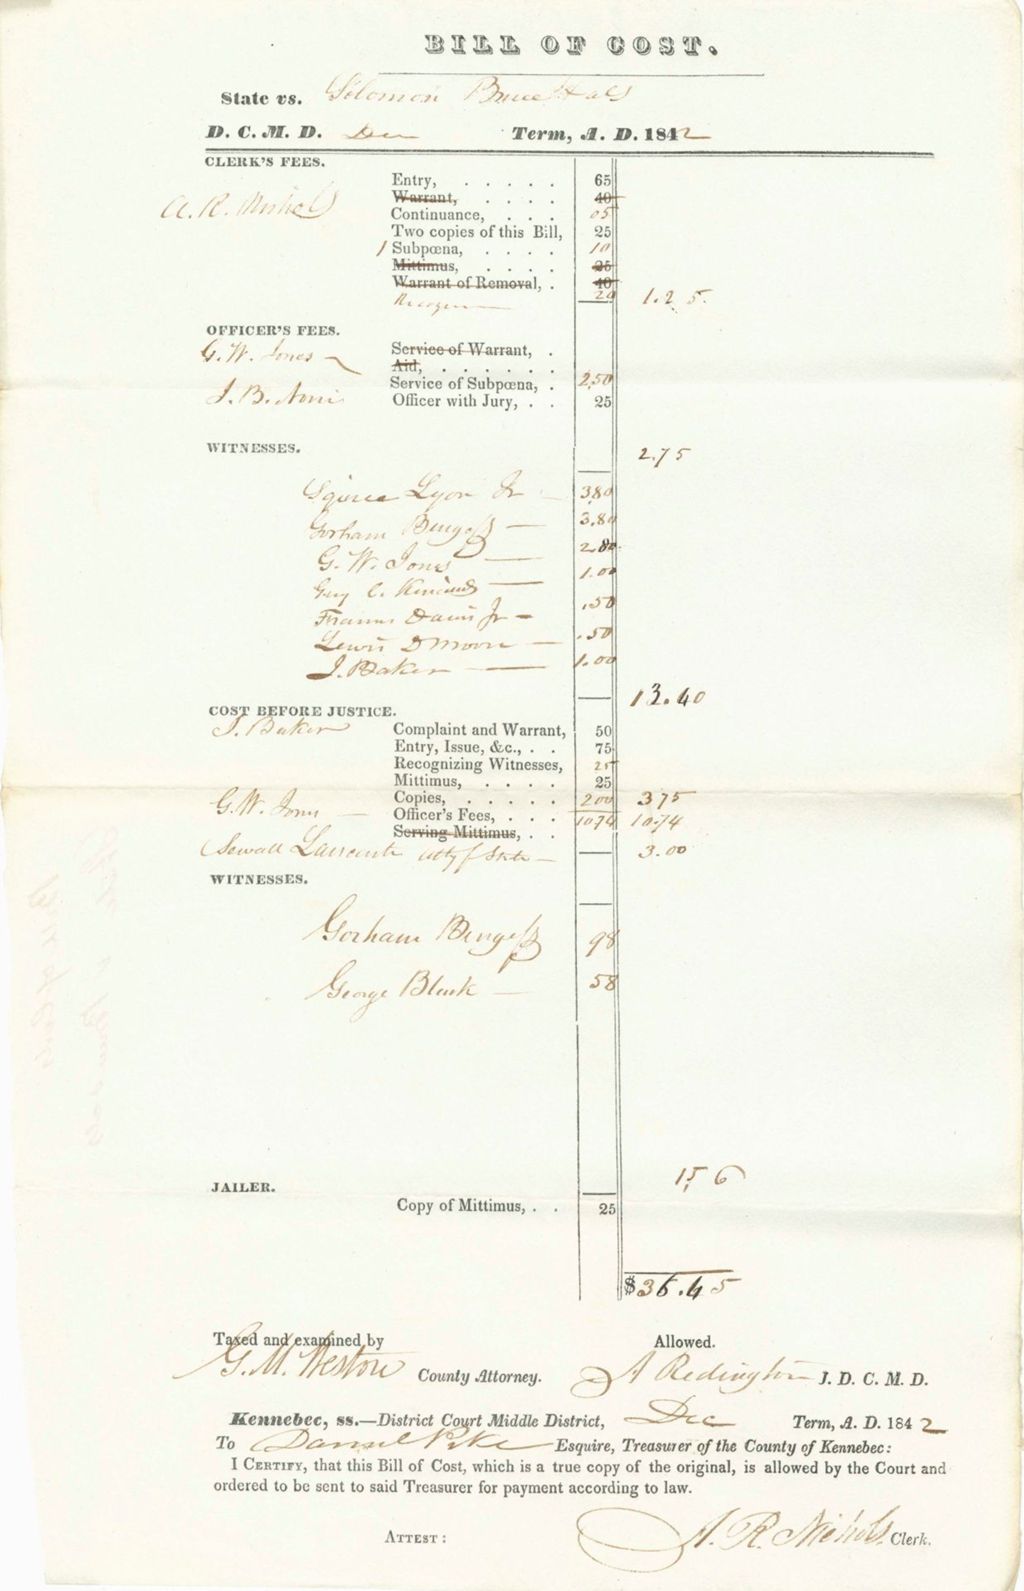 BILL OF COST.
State vs. Solomon Bruce et als
D. C. M. D. Dec Term, A. D. 1842
CLERK'S FEES.
Entry, . . . . . 65
Warrant, . . . . 40
A. R. Nichols
Continuance, . . . 05
Two copies of this Bill, 25
1 Subpœna, . . . . 10
Mittimus, . . . . 25
Warrant of Removal, . 40
Recogn 20 1.25.
OFFICER'S FEES.
G. W. Jones Service of Warrant, .
Aid, . . . . . .
Service of Subpœna, . 2.50
J. B. Norris Officer with Jury, . . 25
WITNESSES. 2.75
Squire Lyon Jr 3.80
Gorham Burgess 3.80
G. W. Jones 2.80
Guy C. 1.00
Francis Davis Jr .50
Lewis D Moore .50
J. Baker 1.00
13.40
COST BEFORE JUSTICE.
J. Baker Complaint and Warrant, 50
Entry, Issue, &c., . . 75
Recognizing Witnesses, 25
Mittimus, . . . . 25
Copies, . . . . . 200 3.75
G. W. Jones Officer's Fees, . . . 10.74 10.74
Serving Mittimus, . .
Sewall Lancaster atty f State 3.00
WITNESSES.
Gorham Burgess 98
George Black 58
1.56
JAILER.
Copy of Mittimus, . . 25
$36.45
Taxed and examined by Allowed.
G. M. Weston County Attorney. A Redington J. D. C. M. D.
Kennebec, ss.—District Court Middle District, Dec Term, A. D. 1842
To Daniel Pike Esquire, Treasurer of the County of Kennebec:
I CERTIFY, that this Bill of Cost, which is a true copy of the original, is allowed by the Court and
ordered to be sent to said Treasurer for payment according to law.
ATTEST: A. R. Nichols Clerk.